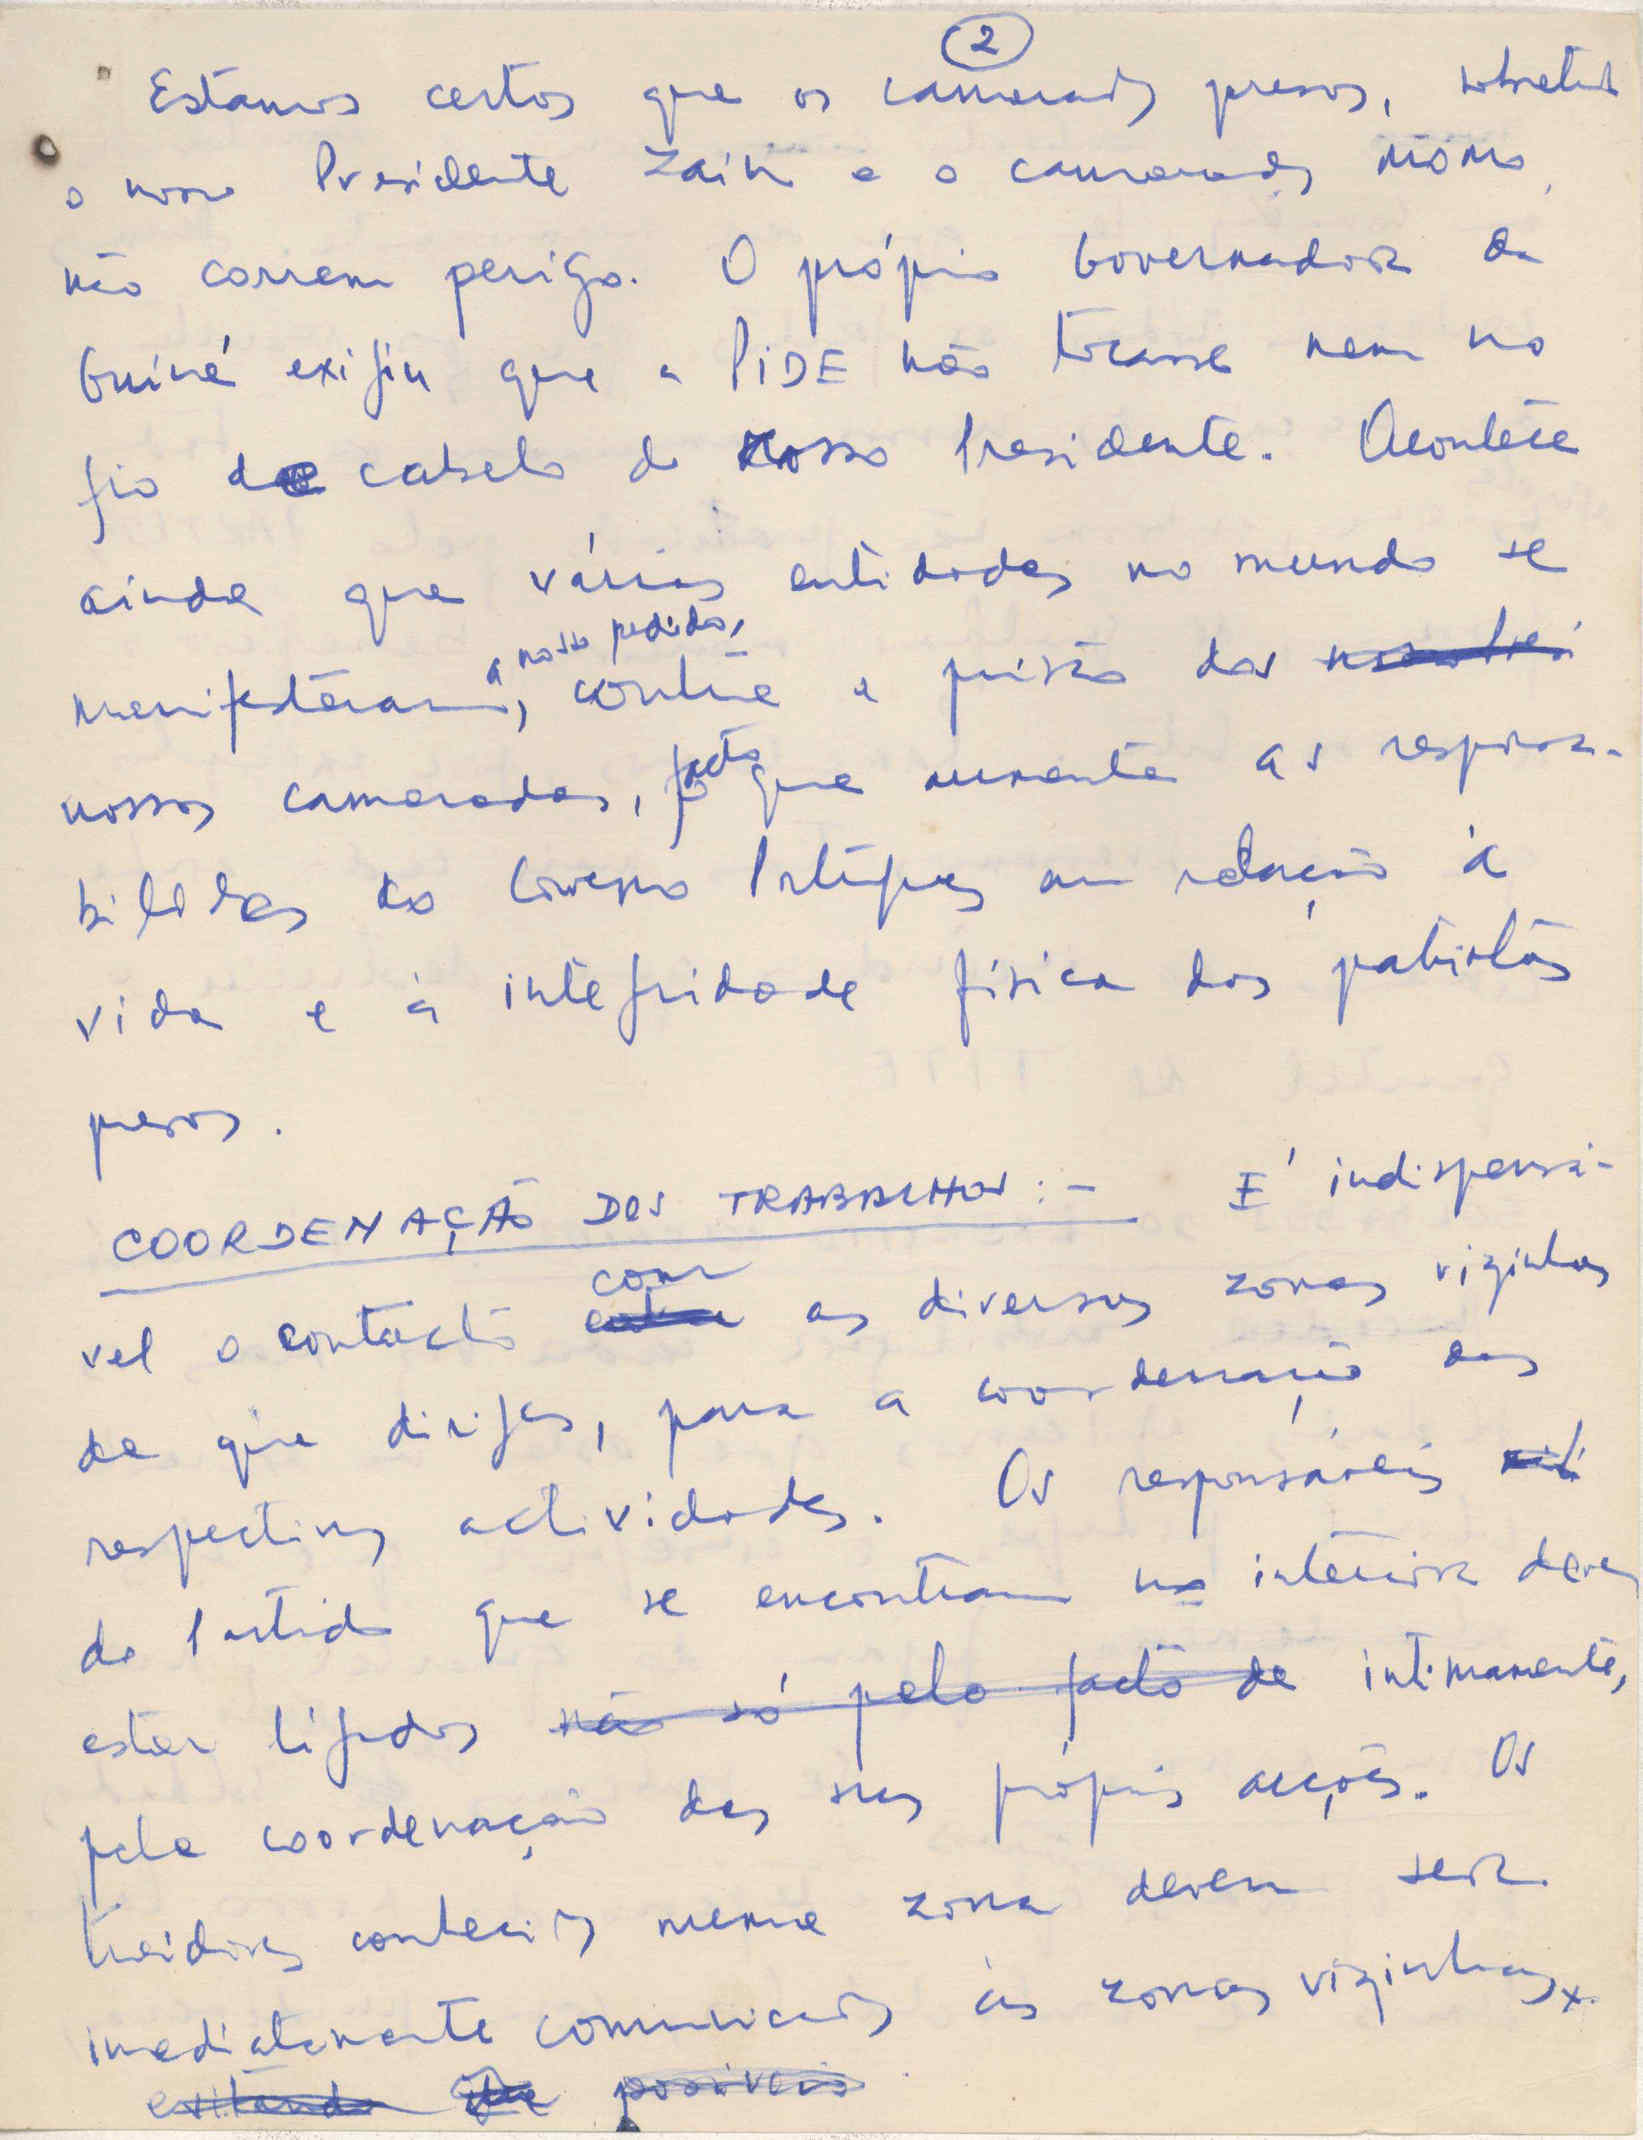 2
Estamos certos que os camaradas presos, sobretudo
o nosso Presidente Zain e o camarada Mômo,
não correm perigo. O próprio Governador da
Guiné exigiu que a PIDE não tocasse nem no
fio de cabelo do nosso Presidente. Acontece
ainda que várias entidades no mundo se
a nosso pedido,
manifestaram, contra a prisão dos
nossos camaradas, facto que aumenta as responsa-
bilidades do Governo Português em relação à
vida e à integridade física dos patriotas
presos.
COORDENAÇÃO DOS TRABALHOS:- É indispensá-
com
vel o contacto entre as diversas zonas vizinhas
da que diriges, para a coordenação das
respectivas actividades. Os responsáveis
do Partido que se encontram no interior devem
estar ligados não só pelo facto de intimamente,
pela coordenação das suas próprias acções. Os
traidores conhecidos numa zona devem ser
imediatamente comunicados às zonas vizinhas x.
evitando que possíveis